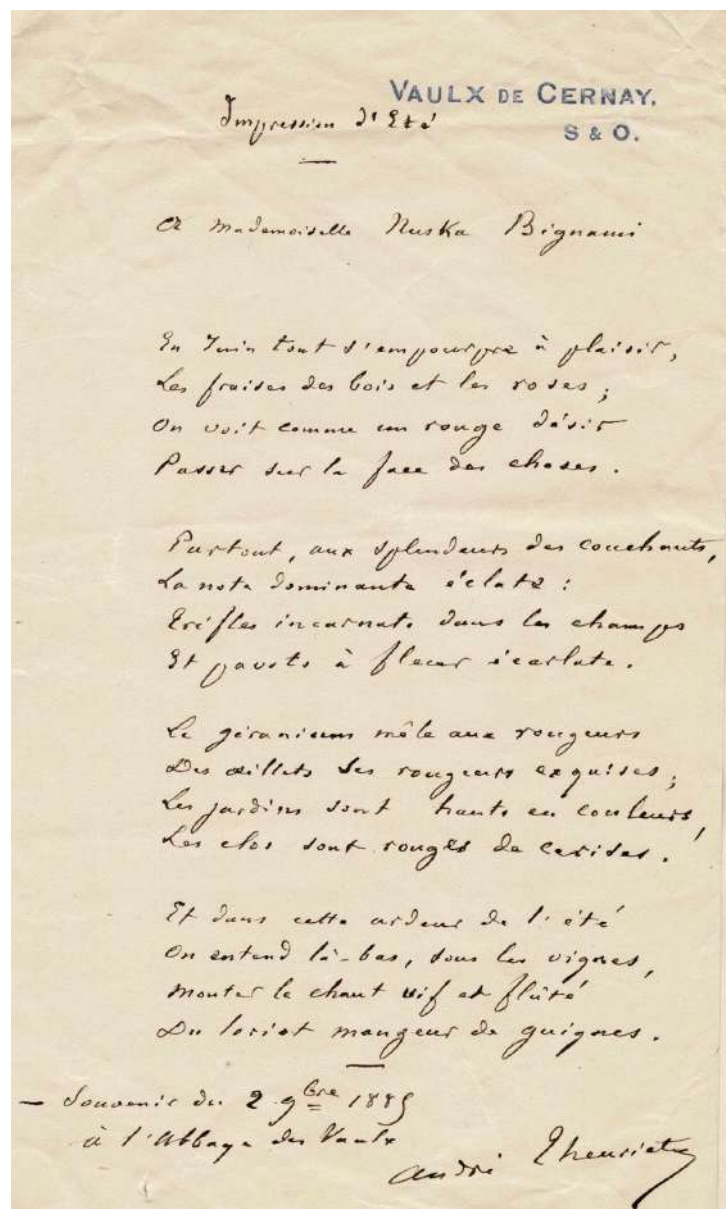 VAULX DE CERNAY.
S & O.
Impression d'Eté
A Mademoiselle Nuska Bignami
En Juin tout s'empourpre à plaisir,
Les fraises des bois et les roses ;
On voit comme un rouge désir
Passer sur la face des choses.
Partout, aux splendeurs des couchants,
La note dominante éclate :
Trèfles incarnats dans les champs
Et pavots à fleur écarlate.
Le géranium mêle aux rougeurs
Des œillets ses rougeurs exquises ;
Les jardins sont hauts en couleurs,
Les clos sont rouges de cerises.
Et dans cette ardeur de l'été
On entend là-bas, sous les vignes,
Monter le chant vif et flûté
Du loriot mangeur de guignes.
— Souvenir du 2 9bre 1885
à l'Abbaye des Vaulx
André Theuriet